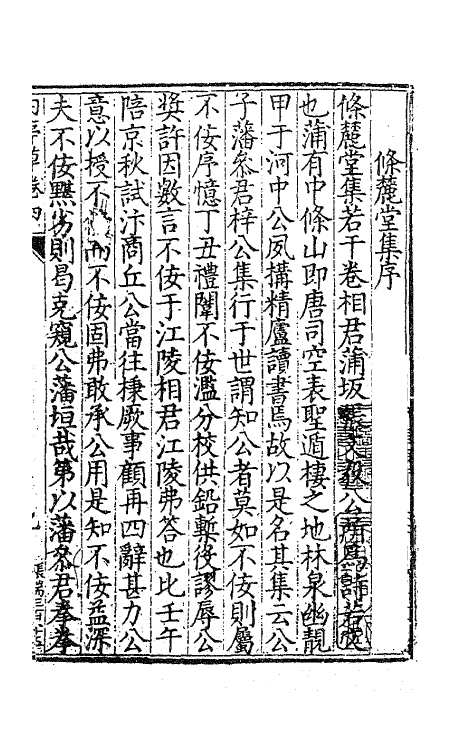 條麓堂集序
條麓堂集若干卷相君蒲坂張文毅公所爲詩若文
也蒲有中條山即唐司空表聖遁棲之地林泉幽靚
甲于河中公夙搆精廬讀書焉故以是名其集云公
子藩叅君梓公集行于世謂知公者莫如不佞則屬
不佞序憶丁丑禮闈不佞濫分校供鉛槧役謬辱公
奬許因數言不佞于江陵相君江陵弗答也比壬午
陪京秋試汴商丘公當往㨿厥事顧再四辭甚力公
意以授不佞而不佞固弗敢承公用是知不佞益深
夫不佞黭劣則曷克窺公藩垣哉第以藩叅君拳拳